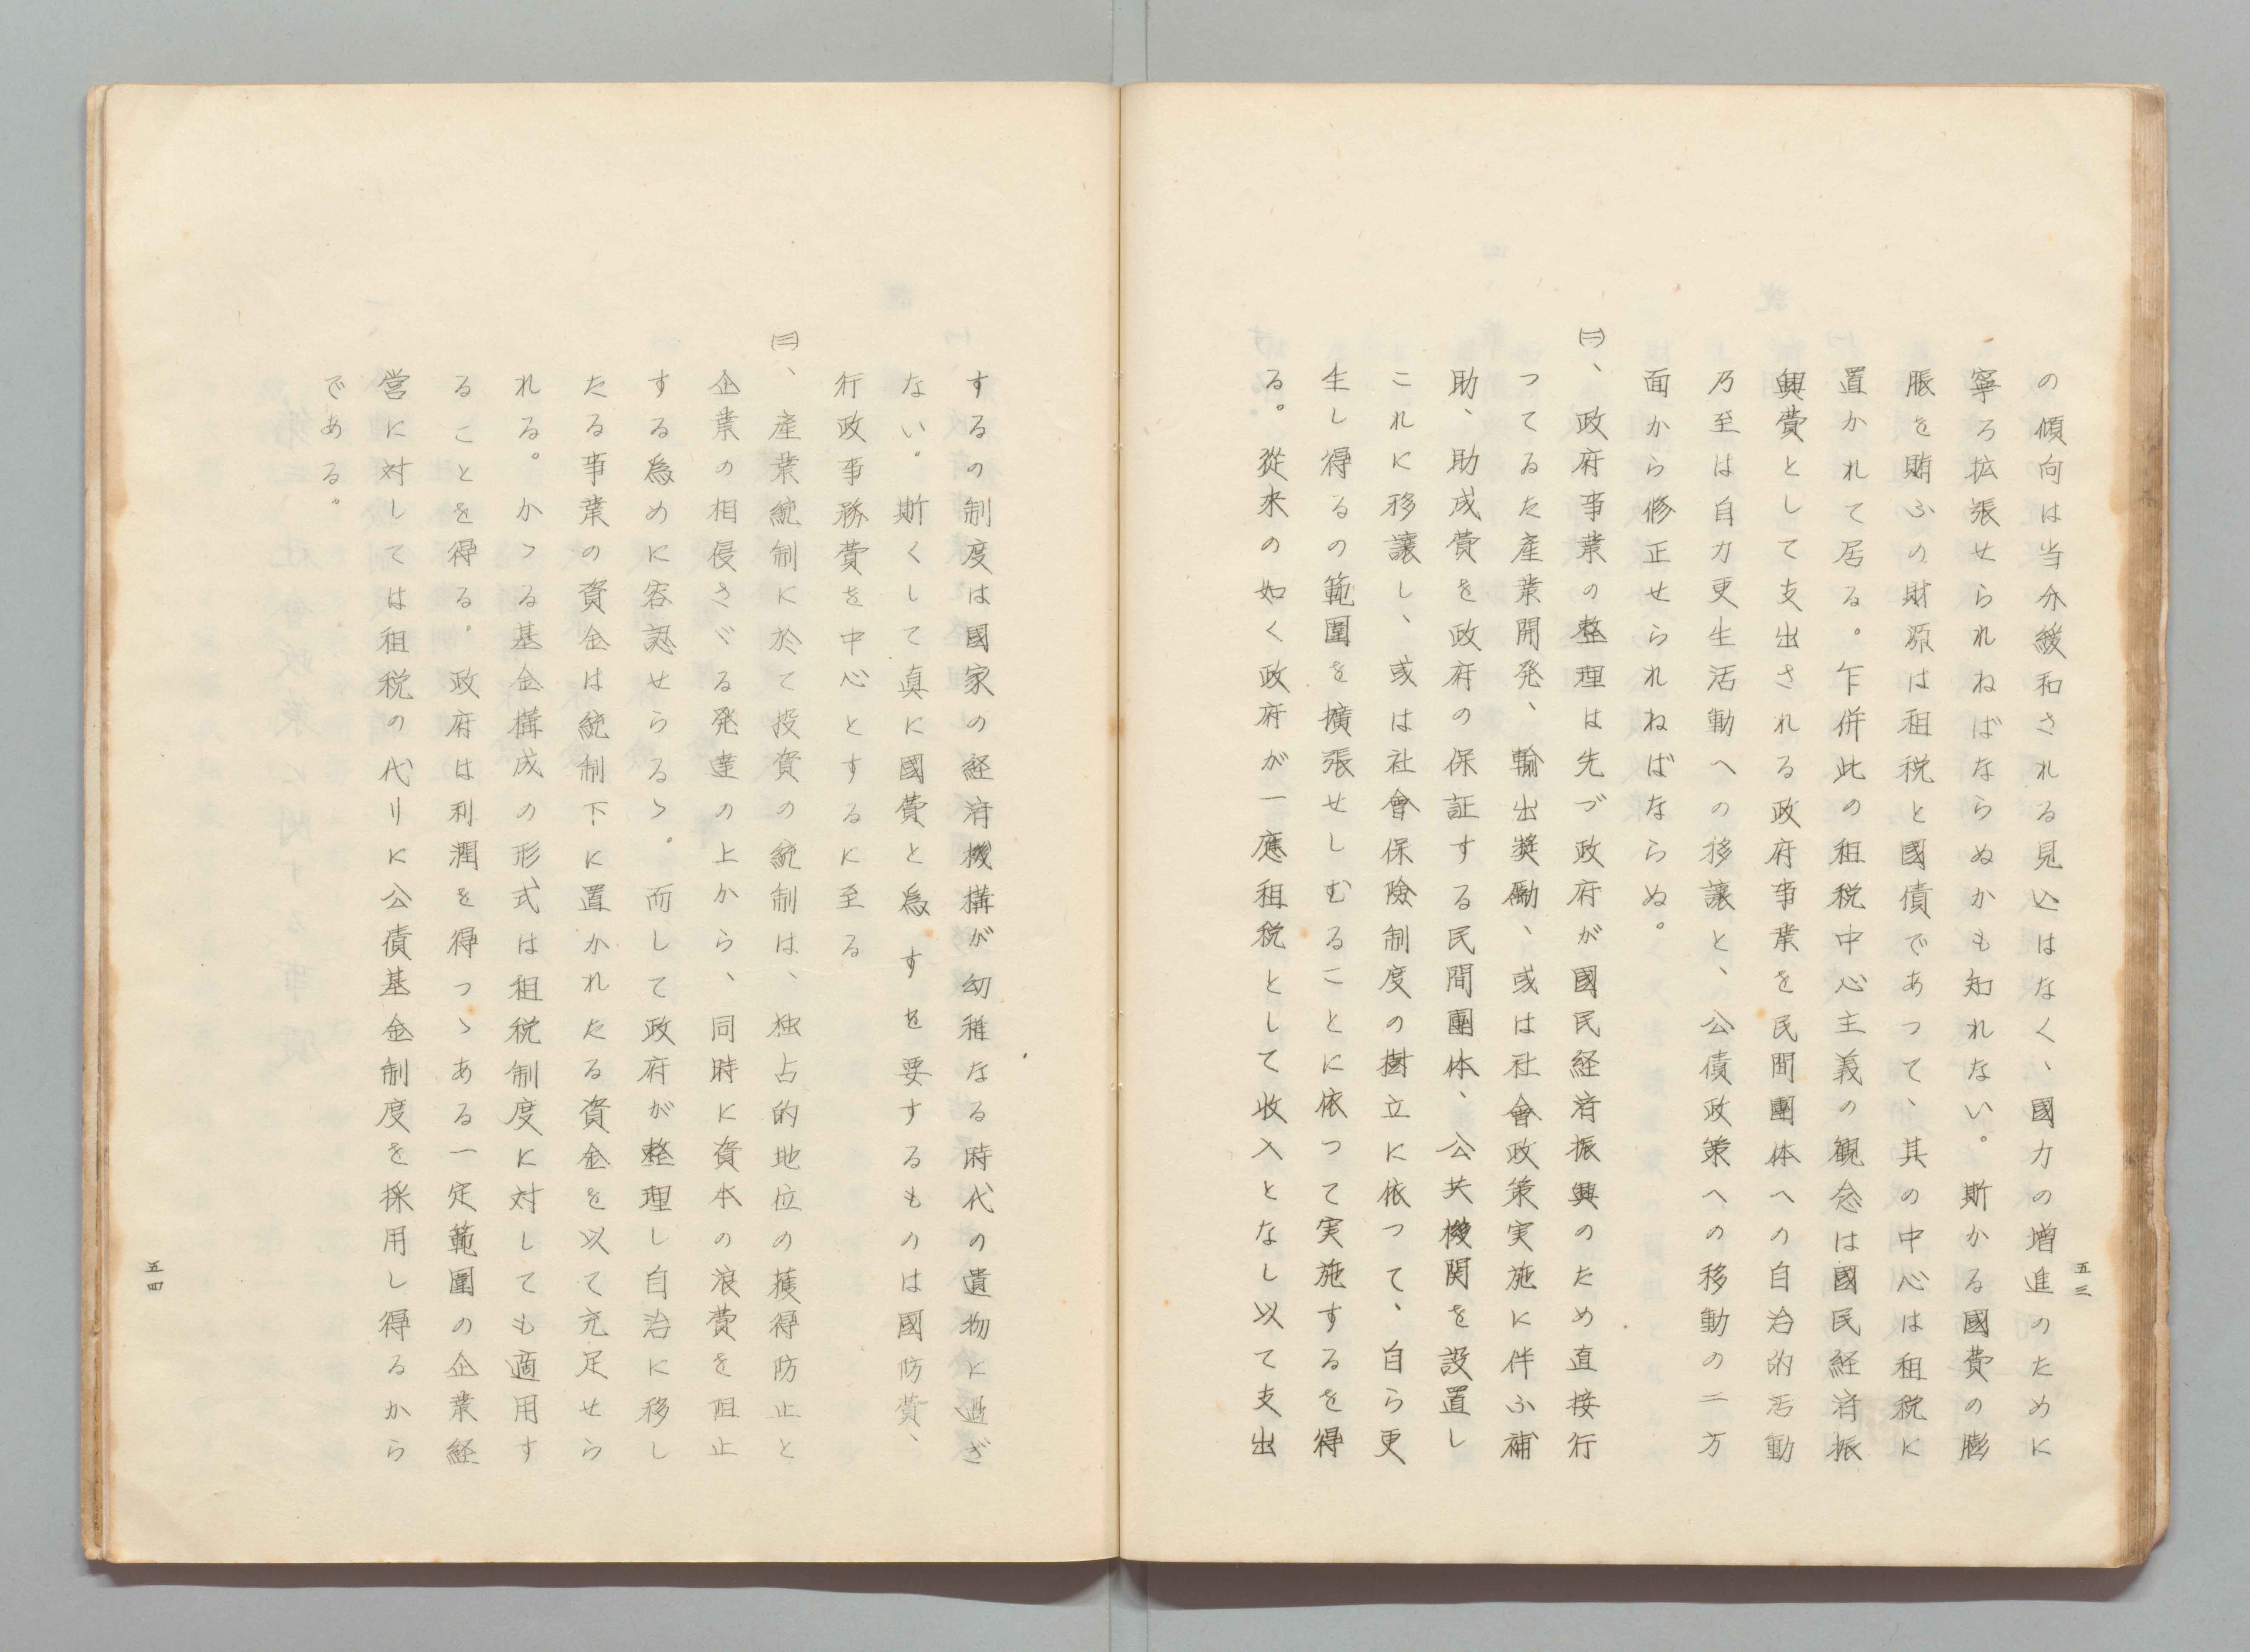 の傾向は当分緩和される見込はなく、國力の増進のために
寧ろ拡張せられねばならぬかも知れない。斯かる國費の膨
脹を賄ふの財源は租税と國債であつて、其の中心は租税に
置かれて居る。乍併此の租税中心主義の観念は國民経済振
興費として支出される政府事業を民間團体への自治的活動
乃至は自力更生活動への移譲と、公債政策への移動の二方
面から修正せられねばならぬ。
㈡、政府事業の整理は先づ政府が國民経済振興のため直接行
つてゐた産業開発、輸出奬勵、或は社會政策実施に伴ふ補
助、助成費を政府の保証する民間團体、公共機関を設置し
これに移譲し、或は社會保險制度の樹立に依つて、自ら更
生し得るの範圍を擴張せしむることに依つて実施するを得
る。從来の如く政府が一應租税として收入となし以て支出
五三
するの制度は國家の経済機構が幼稚なる時代の遺物に過ぎ
ない。斯くして真に國費と為すを要するものは國防費、
行政事務費を中心とするに至る
㈢、産業統制に於て投資の統制は、独占的地位の獲得防止と
企業の相侵さゞる発達の上から、同時に資本の浪費を阻止
する為めに容認せらるゝ。而して政府が整理し自治に移し
たる事業の資金は統制下に置かれたる資金を以て充足せら
れる。かゝる基金構成の形式は租税制度に対しても適用す
ることを得る。政府は利潤を得つゝある一定範圍の企業経
営に対しては租税の代リに公債基金制度を採用し得るから
である。
五四